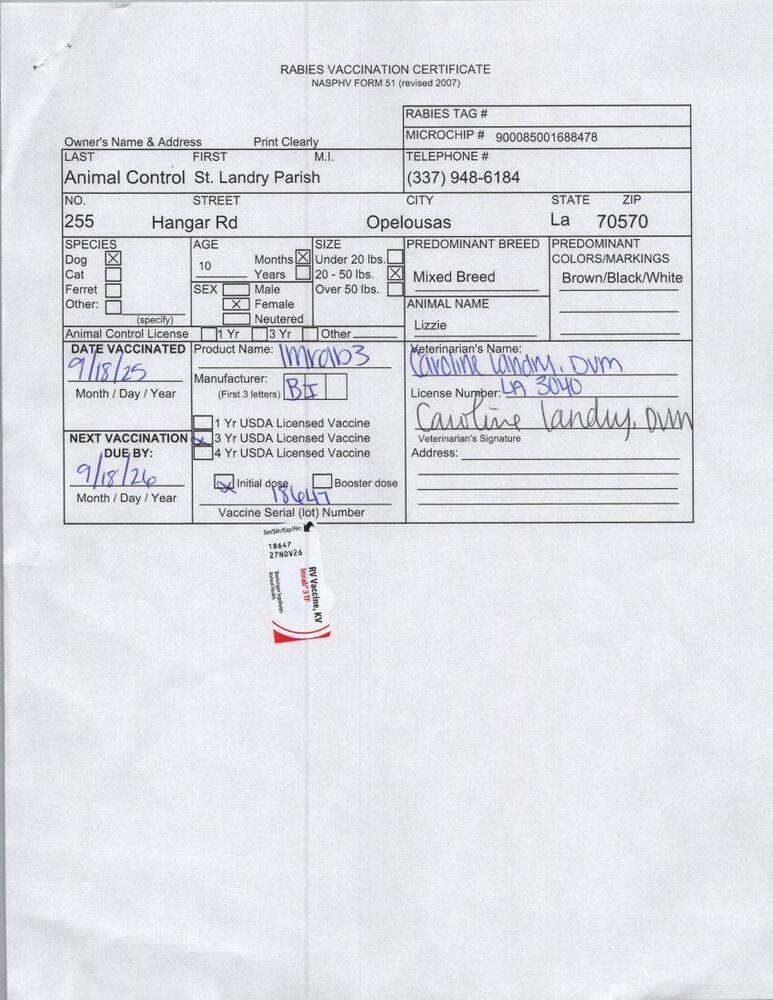 RABIES VACCINATION CERTIFICATE
NASPHV FORM 51 (revised 2007)
RABIES TAG #
Owner's Name & Address Print Clearly
MICROCHIP # 900085001688478
LAST FIRST M.I. TELEPHONE #
Animal Control St. Landry Parish (337) 948-6184
NO. STREET CITY STATE ZIP
255 Hangar Rd Opelousas La 70570
SPECIES AGE SIZE PREDOMINANT BREED PREDOMINANT
Dog ☒ Months ☒ Under 20 lbs. ☐ COLORS/MARKINGS
Cat ☐ 10 Years ☐ 20 - 50 lbs. ☒ Mixed Breed Brown/Black/White
Ferret ☐ SEX ☐ Male Over 50 lbs. ☐
Other: ☐ ☒ Female ANIMAL NAME
(specify) ☐ Neutered Lizzie
Animal Control License ☐ 1 Yr ☐ 3 Yr ☐ Other
DATE VACCINATED Product Name: Imrab3 Veterinarian's Name:
9/18/25 Caroline Landry, DVM
Month / Day / Year Manufacturer: BI License Number: LA 3040
(First 3 letters)
☐ 1 Yr USDA Licensed Vaccine Caroline Landry, DVM
NEXT VACCINATION ☒ 3 Yr USDA Licensed Vaccine Veterinarian's Signature
DUE BY: ☐ 4 Yr USDA Licensed Vaccine Address:
9/18/26 ☒ Initial dose ☐ Booster dose
Month / Day / Year 18647
Vaccine Serial (lot) Number
Ser/Sér/Exp/Péc
18647
27NOV26
RV Vaccine, KV
Imrab® 3 TF
Boehringer Ingelheim
Animal Health